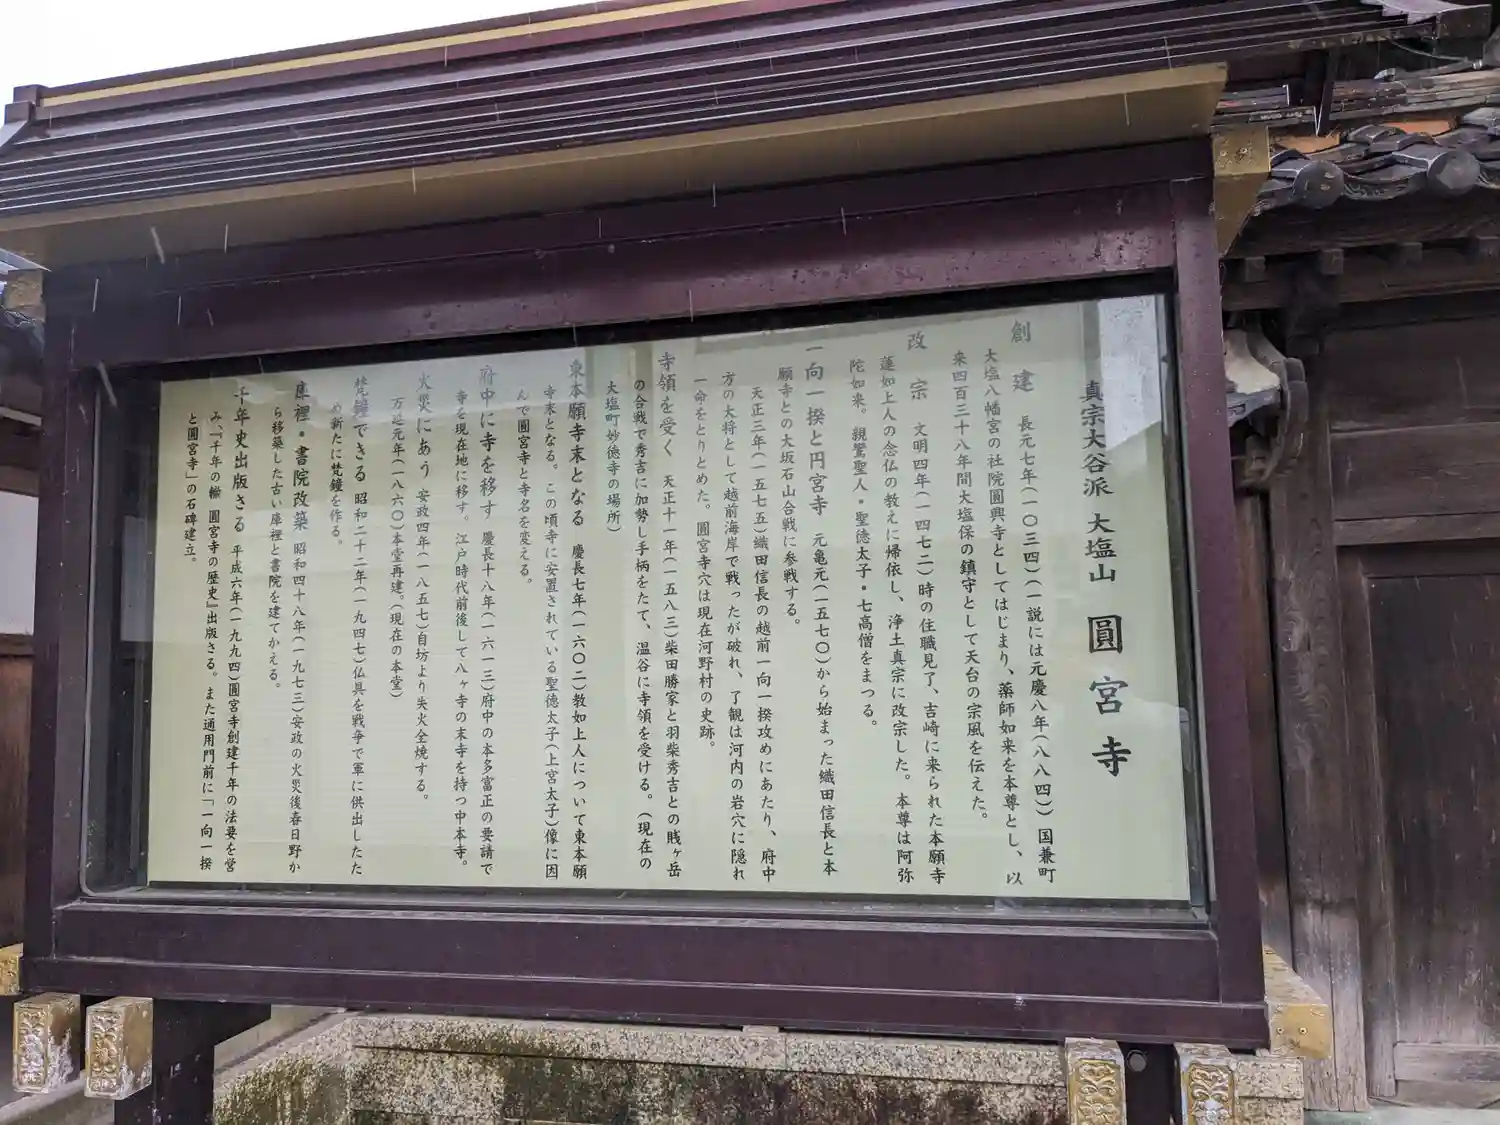 真宗大谷派 大塩山 圓宮寺
創建 長元七年(一〇三四)(一説には元慶八年(八八四)) 国兼町
大塩八幡宮の社院圓興寺としてはじまり、薬師如来を本尊とし、以
来四百三十八年間大塩保の鎮守として天台の宗風を伝えた。
改宗 文明四年(一四七二) 時の住職見了、吉崎に来られた本願寺
蓮如上人の念仏の教えに帰依し、浄土真宗に改宗した。本尊は阿弥
陀如来。親鸞聖人・聖徳太子・七高僧をまつる。
一向一揆と円宮寺 元亀元(一五七〇)から始まった織田信長と本
願寺との大坂石山合戦に参戦する。
天正三年(一五七五)織田信長の越前一向一揆攻めにあたり、府中
方の大将として越前海岸で戦ったが破れ、了観は河内の岩穴に隠れ
一命をとりとめた。圓宮寺穴は現在河野村の史跡。
寺領を受く 天正十一年(一五八三)柴田勝家と羽柴秀吉との賎ヶ岳
の合戦で秀吉に加勢し手柄をたて、温谷に寺領を受ける。(現在の
大塩町妙徳寺の場所)
東本願寺末となる 慶長七年(一六〇二)教如上人について東本願
寺末となる。この頃寺に安置されている聖徳太子(上宮太子)像に因
んで圓宮寺と寺名を変える。
府中に寺を移す 慶長十八年(一六一三)府中の本多富正の要請で
寺を現在地に移す。江戸時代前後して八ヶ寺の末寺を持つ中本寺。
火災にあう 安政四年(一八五七)自坊より失火全焼する。
万延元年(一八六〇)本堂再建。(現在の本堂)
梵鐘できる 昭和二十二年(一九四七)仏具を戦争で軍に供出したた
め新たに梵鐘を作る。
庫裡・書院改築 昭和四十八年(一九七三)安政の火災後春日野か
ら移築した古い庫裡と書院を建てかえる。
千年史出版さる 平成六年(一九九四)圓宮寺創建千年の法要を営
み、『千年の轍 圓宮寺の歴史』出版さる。また通用門前に「一向一揆
と圓宮寺」の石碑建立。